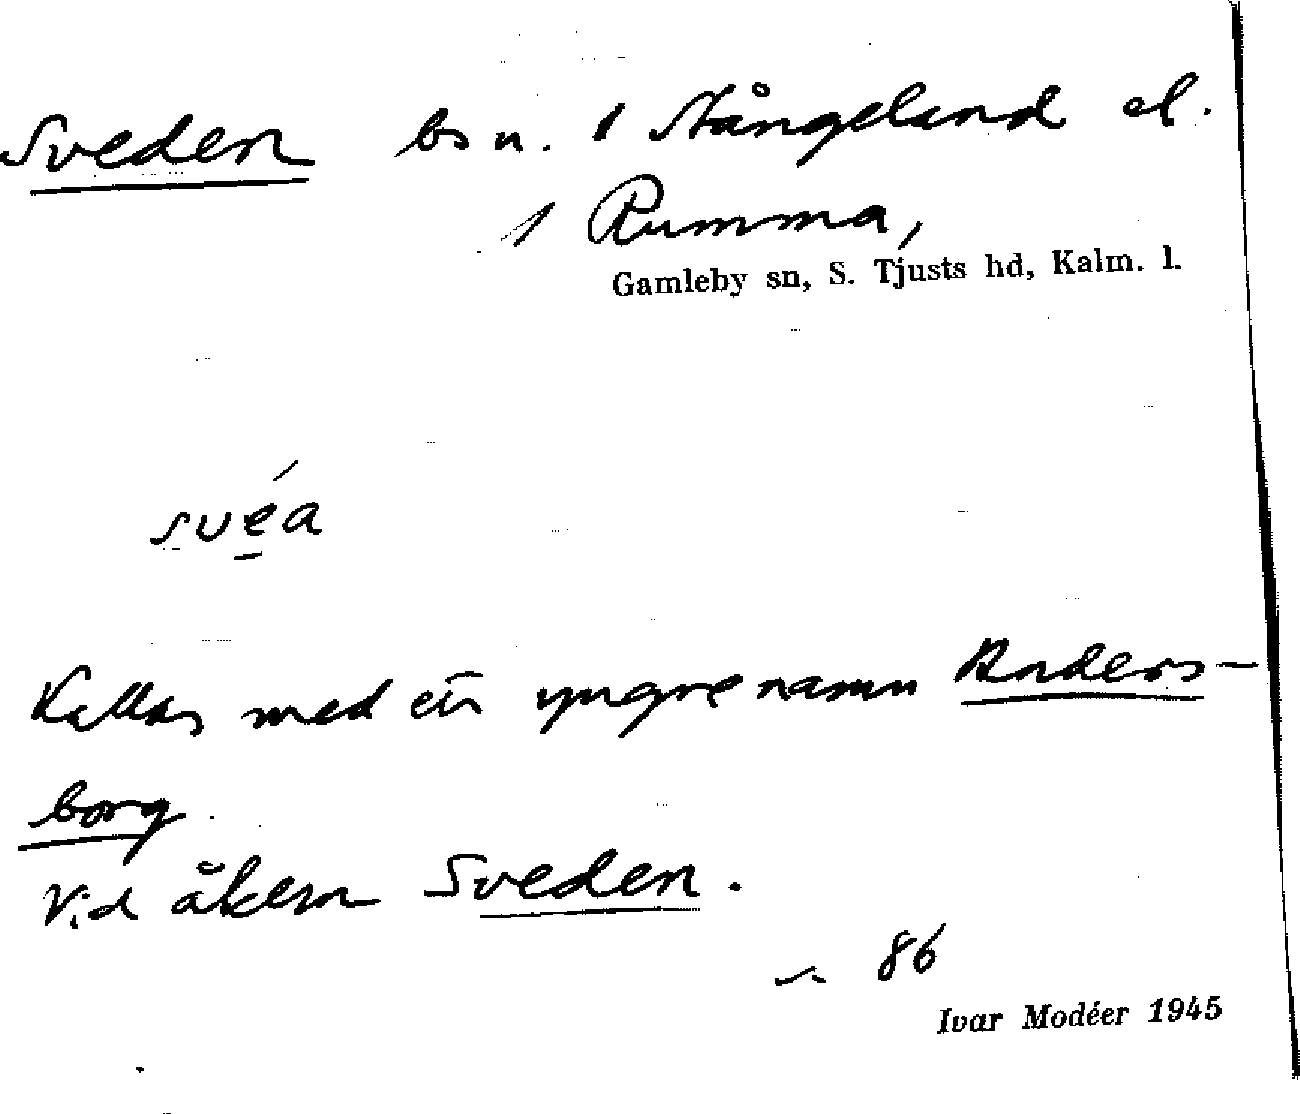 Sveden bs n. i Stångeland el.
i Rumma,
Gamleby sn, S. Tjusts hd, Kalm. l.
svéa
Kallas med ett yngre namn Anders-
borg.
Vid åkern Sveden.
86
Ivar Modéer 1945